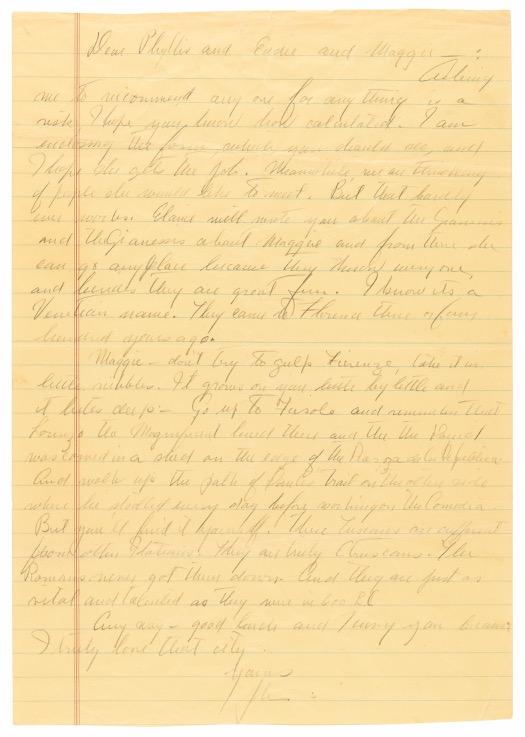 Dear Phyllis and Eddie and Maggie — :
Asking
me to recommend any one for any thing is a
risk I hope you know how calculated. I am
enclosing the form which you should see, and
I hope she gets the job. Meanwhile we are thinking
of people she would like to meet. But that hardly
ever works. Elaine will write you about the
and the about Maggie and from there she
can go any place because they know everyone,
and besides they are great fun. I know its a
Venetian name. They came to Florence three or four
hundred years ago.
Maggie — don't try to gulp Firenze, take it in
little nibbles. It grows on you little by little and
it bites deep — Go up to Fiesole and remember that
Lorenzo the Magnificent lived there and the the David
was carved in a shed on the edge of the Piazza della
And walk up the path of trail on the other side
where he strolled every day before working on the Comedia.
But you'll find it yourself. These Tuscans are different
from other Italians. They are truly Etruscans. The
Romans never got them down. And they are just as
vital and talented as they were in 600 B.C
Any way — good luck and I envy you because
I truly love that city.
Yours